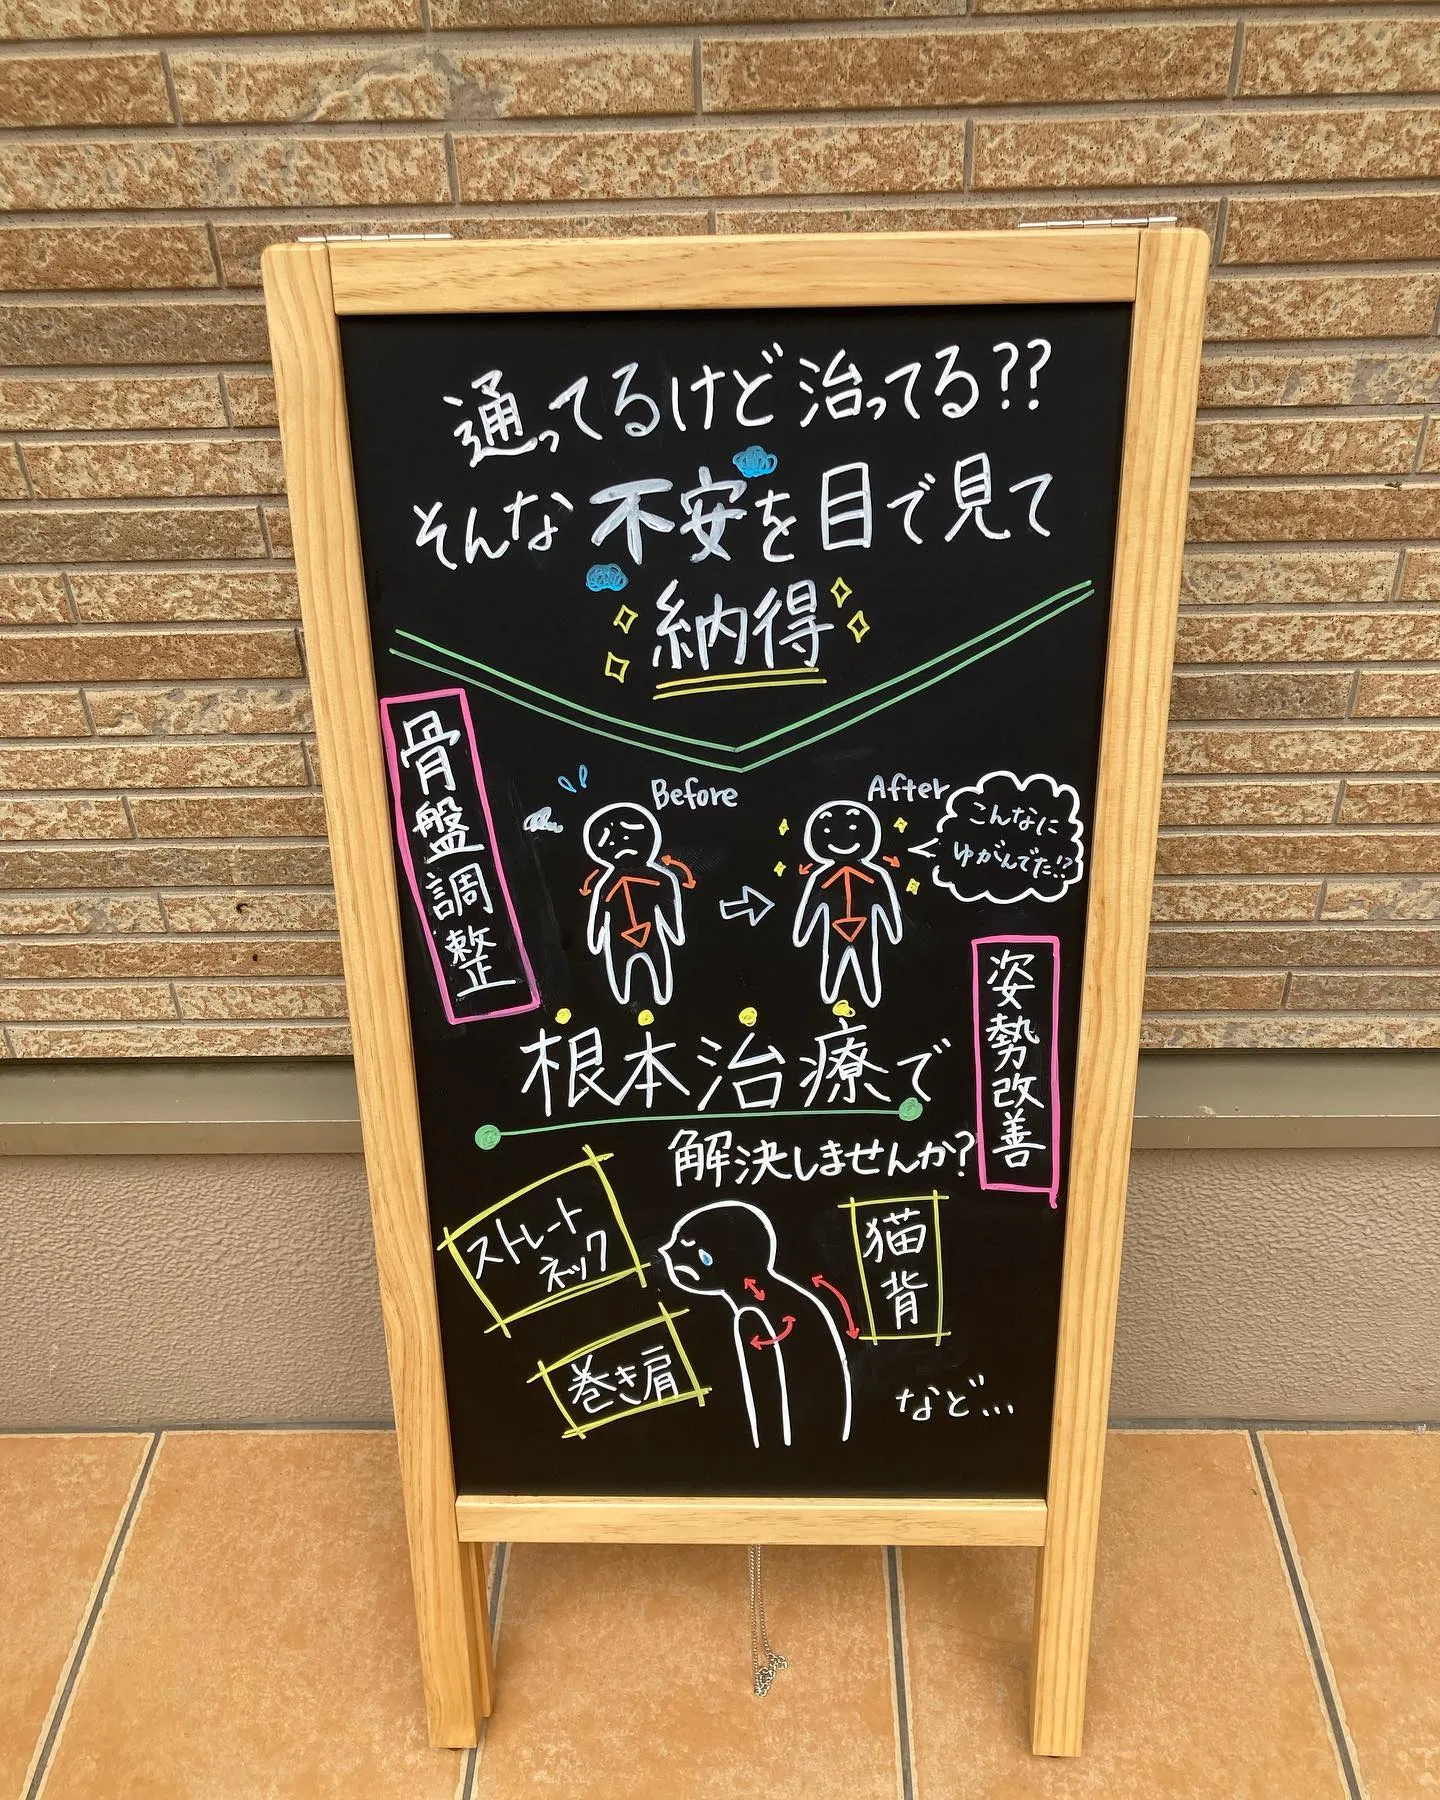 通ってるけど治ってる??
そんな不安を目で見て
納得
骨盤調整
Before
After
こんなに
ゆがんでた!?
姿勢改善
根本治療で
解決しませんか?
ストレート
ネック
猫背
巻き肩
など...